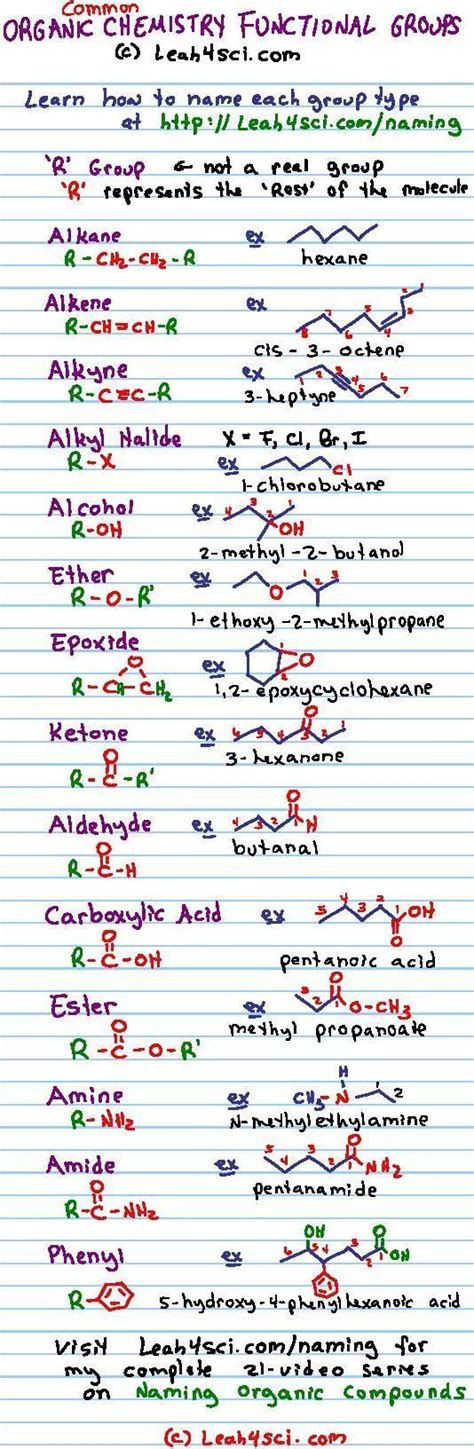 Common
ORGANIC CHEMISTRY FUNCTIONAL GROUPS
(c) Leah4sci.com
Learn how to name each group type
at http://Leah4sci.com/naming
'R' Group ← not a real group
'R' represents the 'Rest' of the molecule
Alkane ex
R-CH2-CH2-R hexane
Alkene ex
R-CH=CH-R
8 7 6 5 4 3 2 1
cis-3-octene
Alkyne ex
1 2 3 7
R-C≡C-R 3-heptyne
Alkyl Halide X = F, Cl, Br, I
R-X ex Cl
1-chlorobutane
Alcohol ex 4 3 2 1
R-OH OH
2-methyl-2-butanol
Ether ex O 1 2 3
R-O-R'
1-ethoxy-2-methylpropane
Epoxide
O
R-CH-CH2 ex 1 2 O
1,2-epoxycyclohexane
Ketone ex 6 5 4 3 2 1
O
O 3-hexanone
R-C-R'
Aldehyde ex 4 3 2 1 O H
O butanal
R-C-H
Carboxylic Acid ex 5 4 3 2 1 OH
O O
R-C-OH pentanoic acid
Ester ex 3 2 1 O O-CH3
O methyl propanoate
R-C-O-R'
H
Amine ex CH3-N 1 2
R-NH2 N-methylethylamine
Amide ex 5 4 3 2 1 O NH2
O pentanamide
R-C-NH2
Phenyl ex OH O
6 5 4 3 2 1 OH
R- 5-hydroxy-4-phenylhexanoic acid
Visit Leah4sci.com/naming for
my complete 21-video series
on Naming Organic Compounds
(c) Leah4sci.com